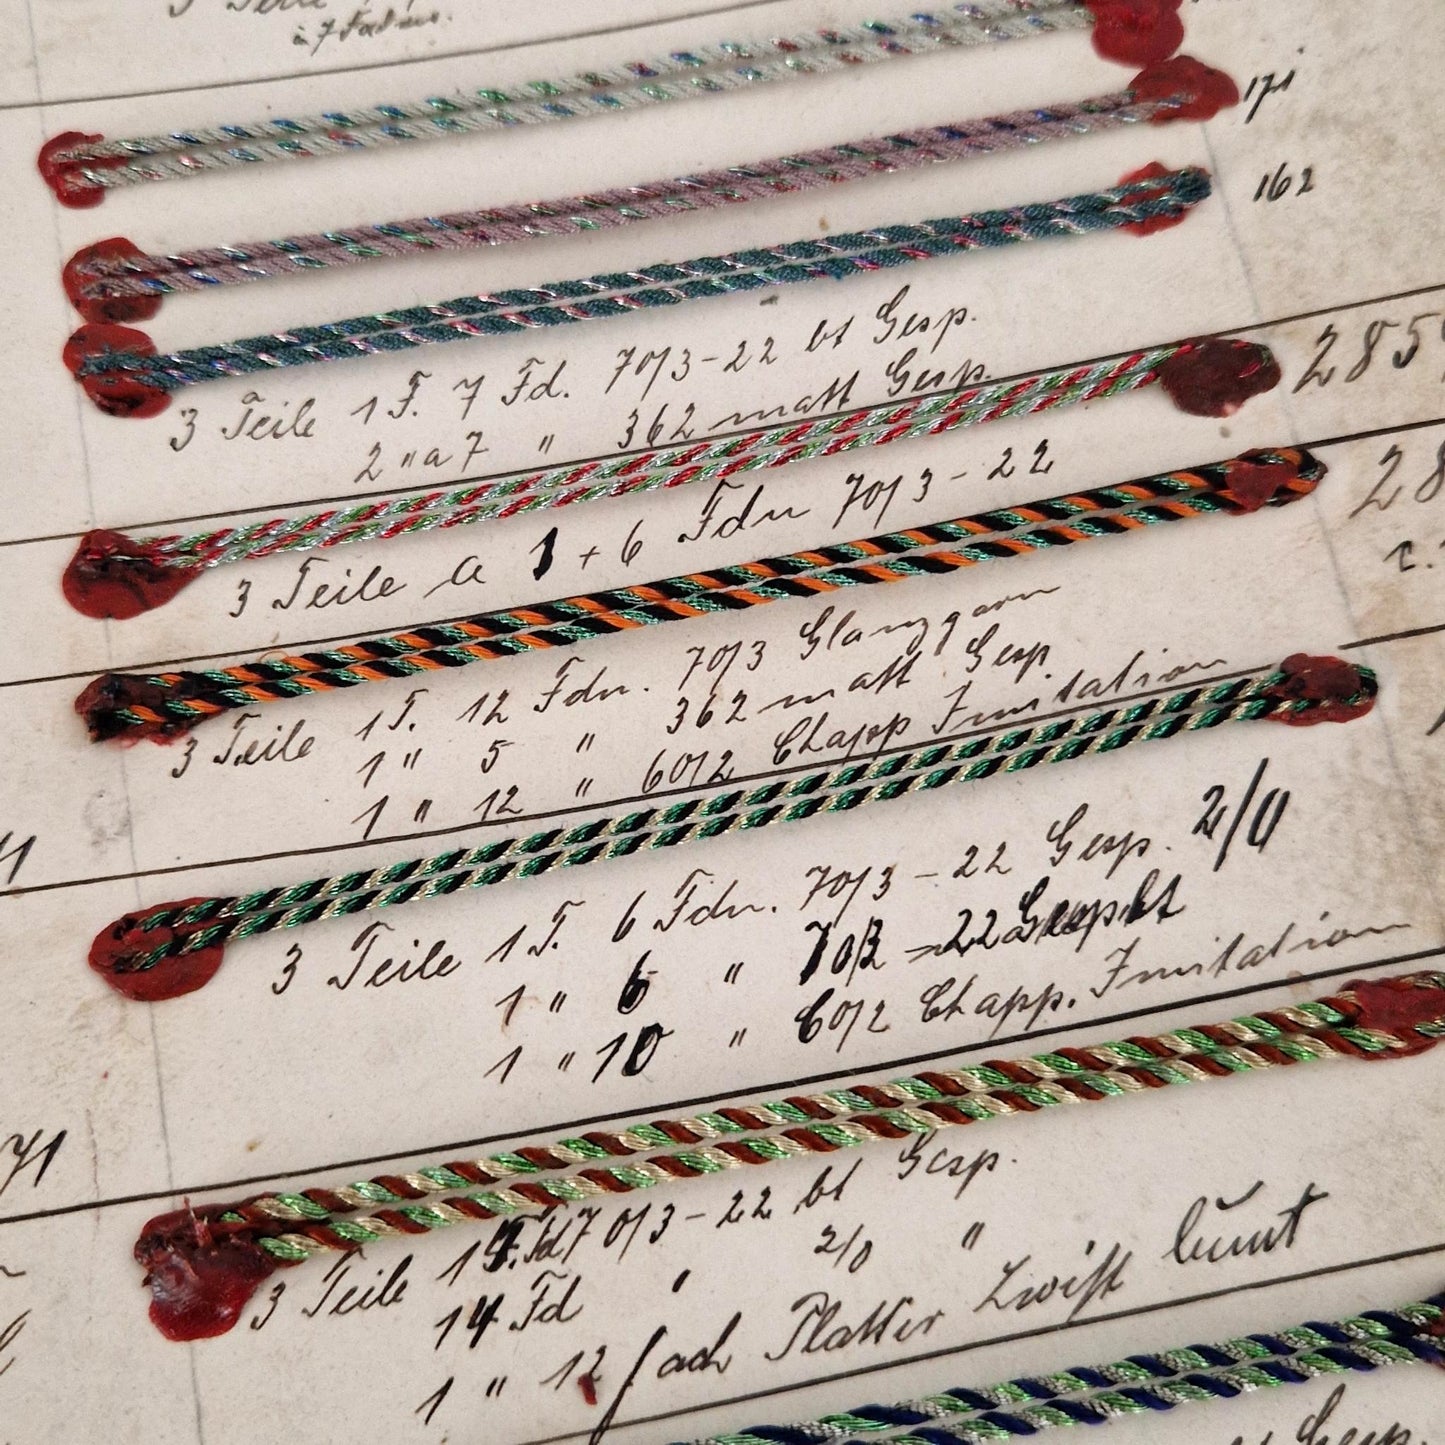 3 Teile
à 7 Faden.
171
162
3 Teile 1 F. 7 Fd. 70/3-22 bt Gesp.
2 " a 7 " 362 matt Gesp.
285
3 Teile a 1 + 6 Fdn 70/3-22
28
3 Teile 1 T. 12 Fdn. 70/3 Glanzgarn
1 " 5 " 362 matt Gesp
1 " 12 " 60/2 Chapp Imitation
3 Teile 1 T. 6 Fdn. 70/3-22 Gesp. 2/0
1 " 6 " 70/2 -22 Gesp bt
1 " 10 " 60/2 Chapp. Imitation
71
3 Teile 1 Fd 70/3-22 bt Gesp.
14 Fd " 2/0 "
1 " 12 fach Platter Zwist bunt
Gesp.